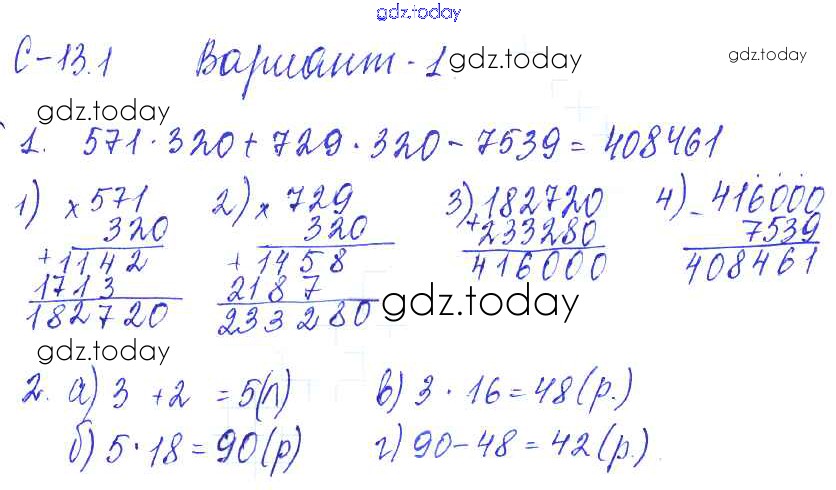 gdz.today
С-13.1 Вариант-1 gdz.today gdz.today
gdz.today
1. 571·320+729·320-7539=408461
1) × 571 2) × 729 3) 182720 4) - 416000
320 320 + 233280 7539
+ 1142 + 1458 416000 408461
1713 2187
182720 233280 gdz.today
gdz.today
2. а) 3 + 2 = 5(л) в) 3 · 16 = 48 (р.)
б) 5 · 18 = 90(р) г) 90-48 = 42 (р.)